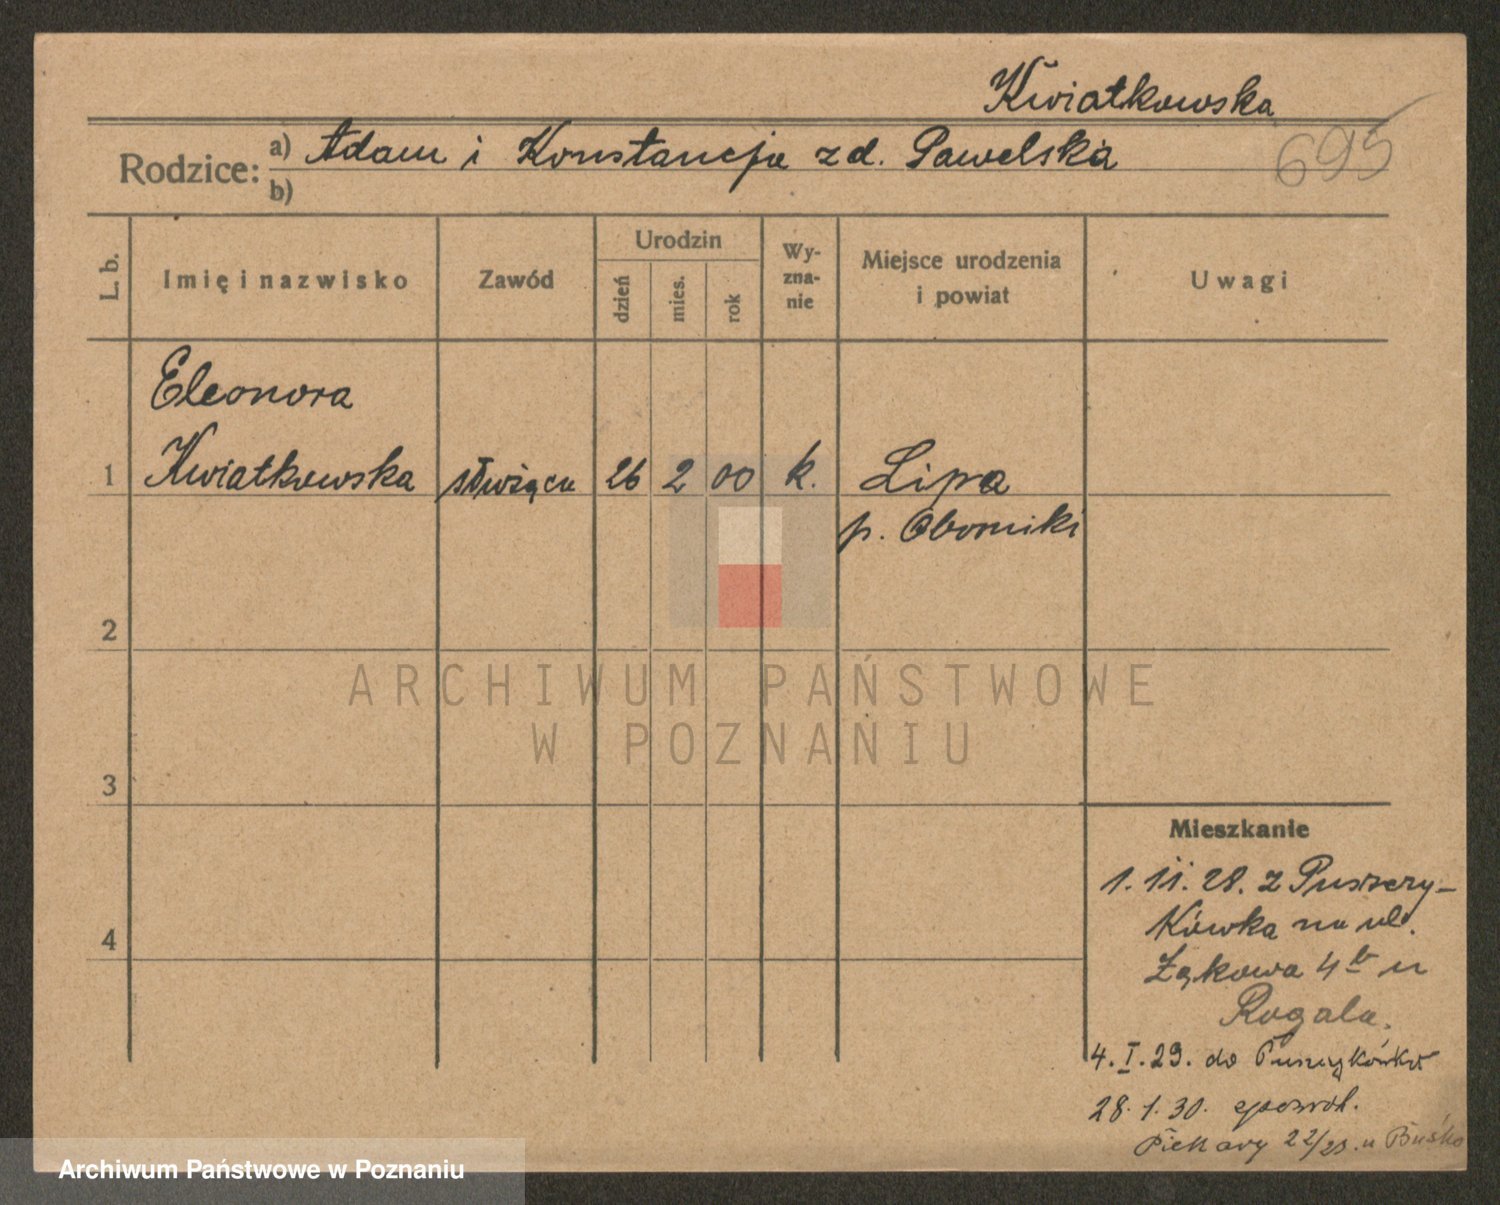 Kwiatkowska
695
Rodzice: a) Adam i Konstancja zd. Pawelska
b)
L. b. Imię i nazwisko Zawód Urodzin dzień mies. rok Wyzna-nie Miejsce urodzenia i powiat Uwagi
Eleonora
1 Kwiatkowska służąca 26 2 00 k. Lipa
p. Oborniki
2
ARCHIWUM PAŃSTWOWE
W POZNANIU
3
Mieszkanie
1. 11. 28. z Puszczy-
kówka na ul.
4
Łąkowa 4b u
Rogala.
4. I. 29. do
28. 1. 30.
Piekary 22/23. u
Archiwum Państwowe w Poznaniu